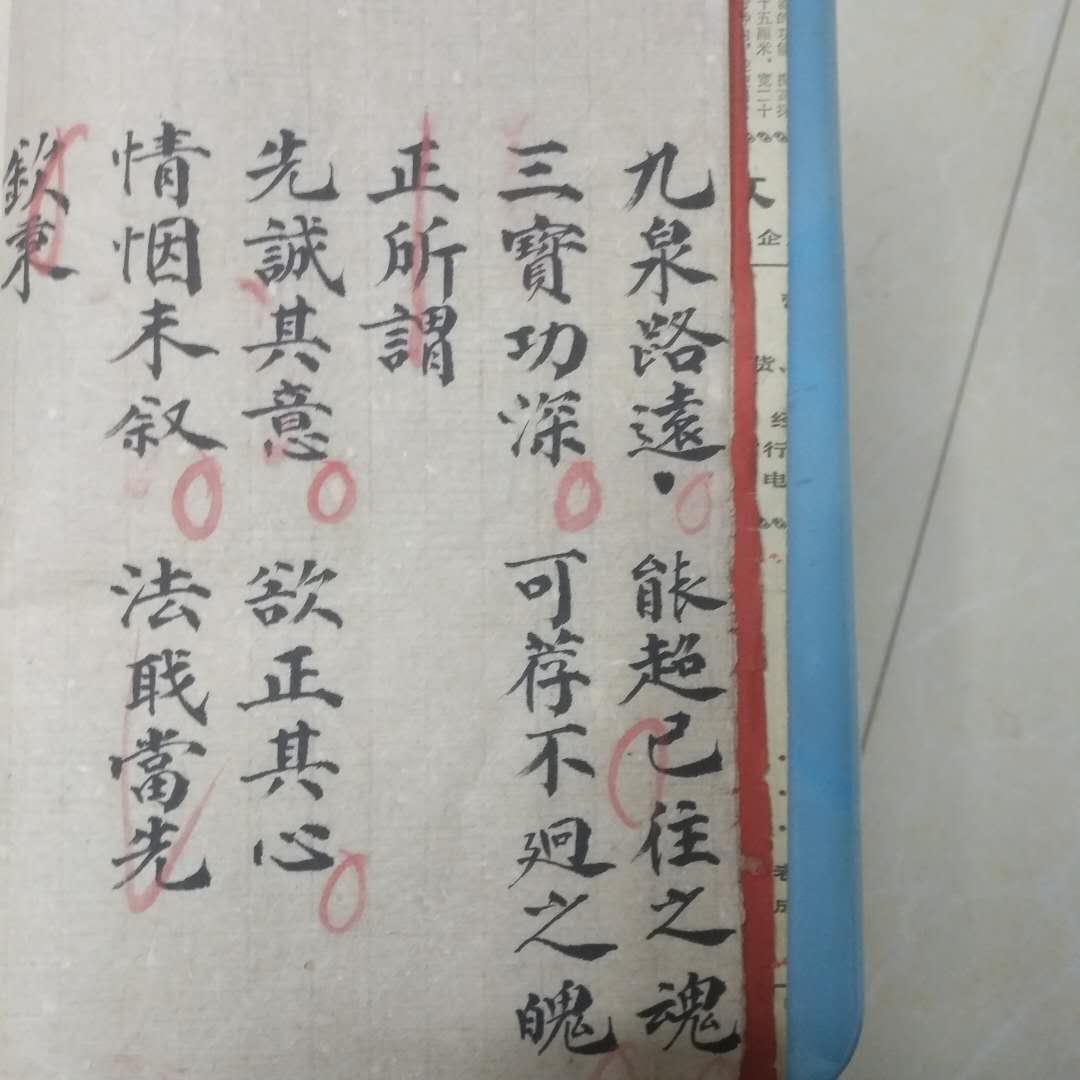 九泉路遠 能超已往之魂
三寶功深 可荐不廻之魄
正所謂
先誠其意 欲正其心
情悃未叙 法戝當先
欽秉
十五厘米，宽二十
企
货、
经
行
电